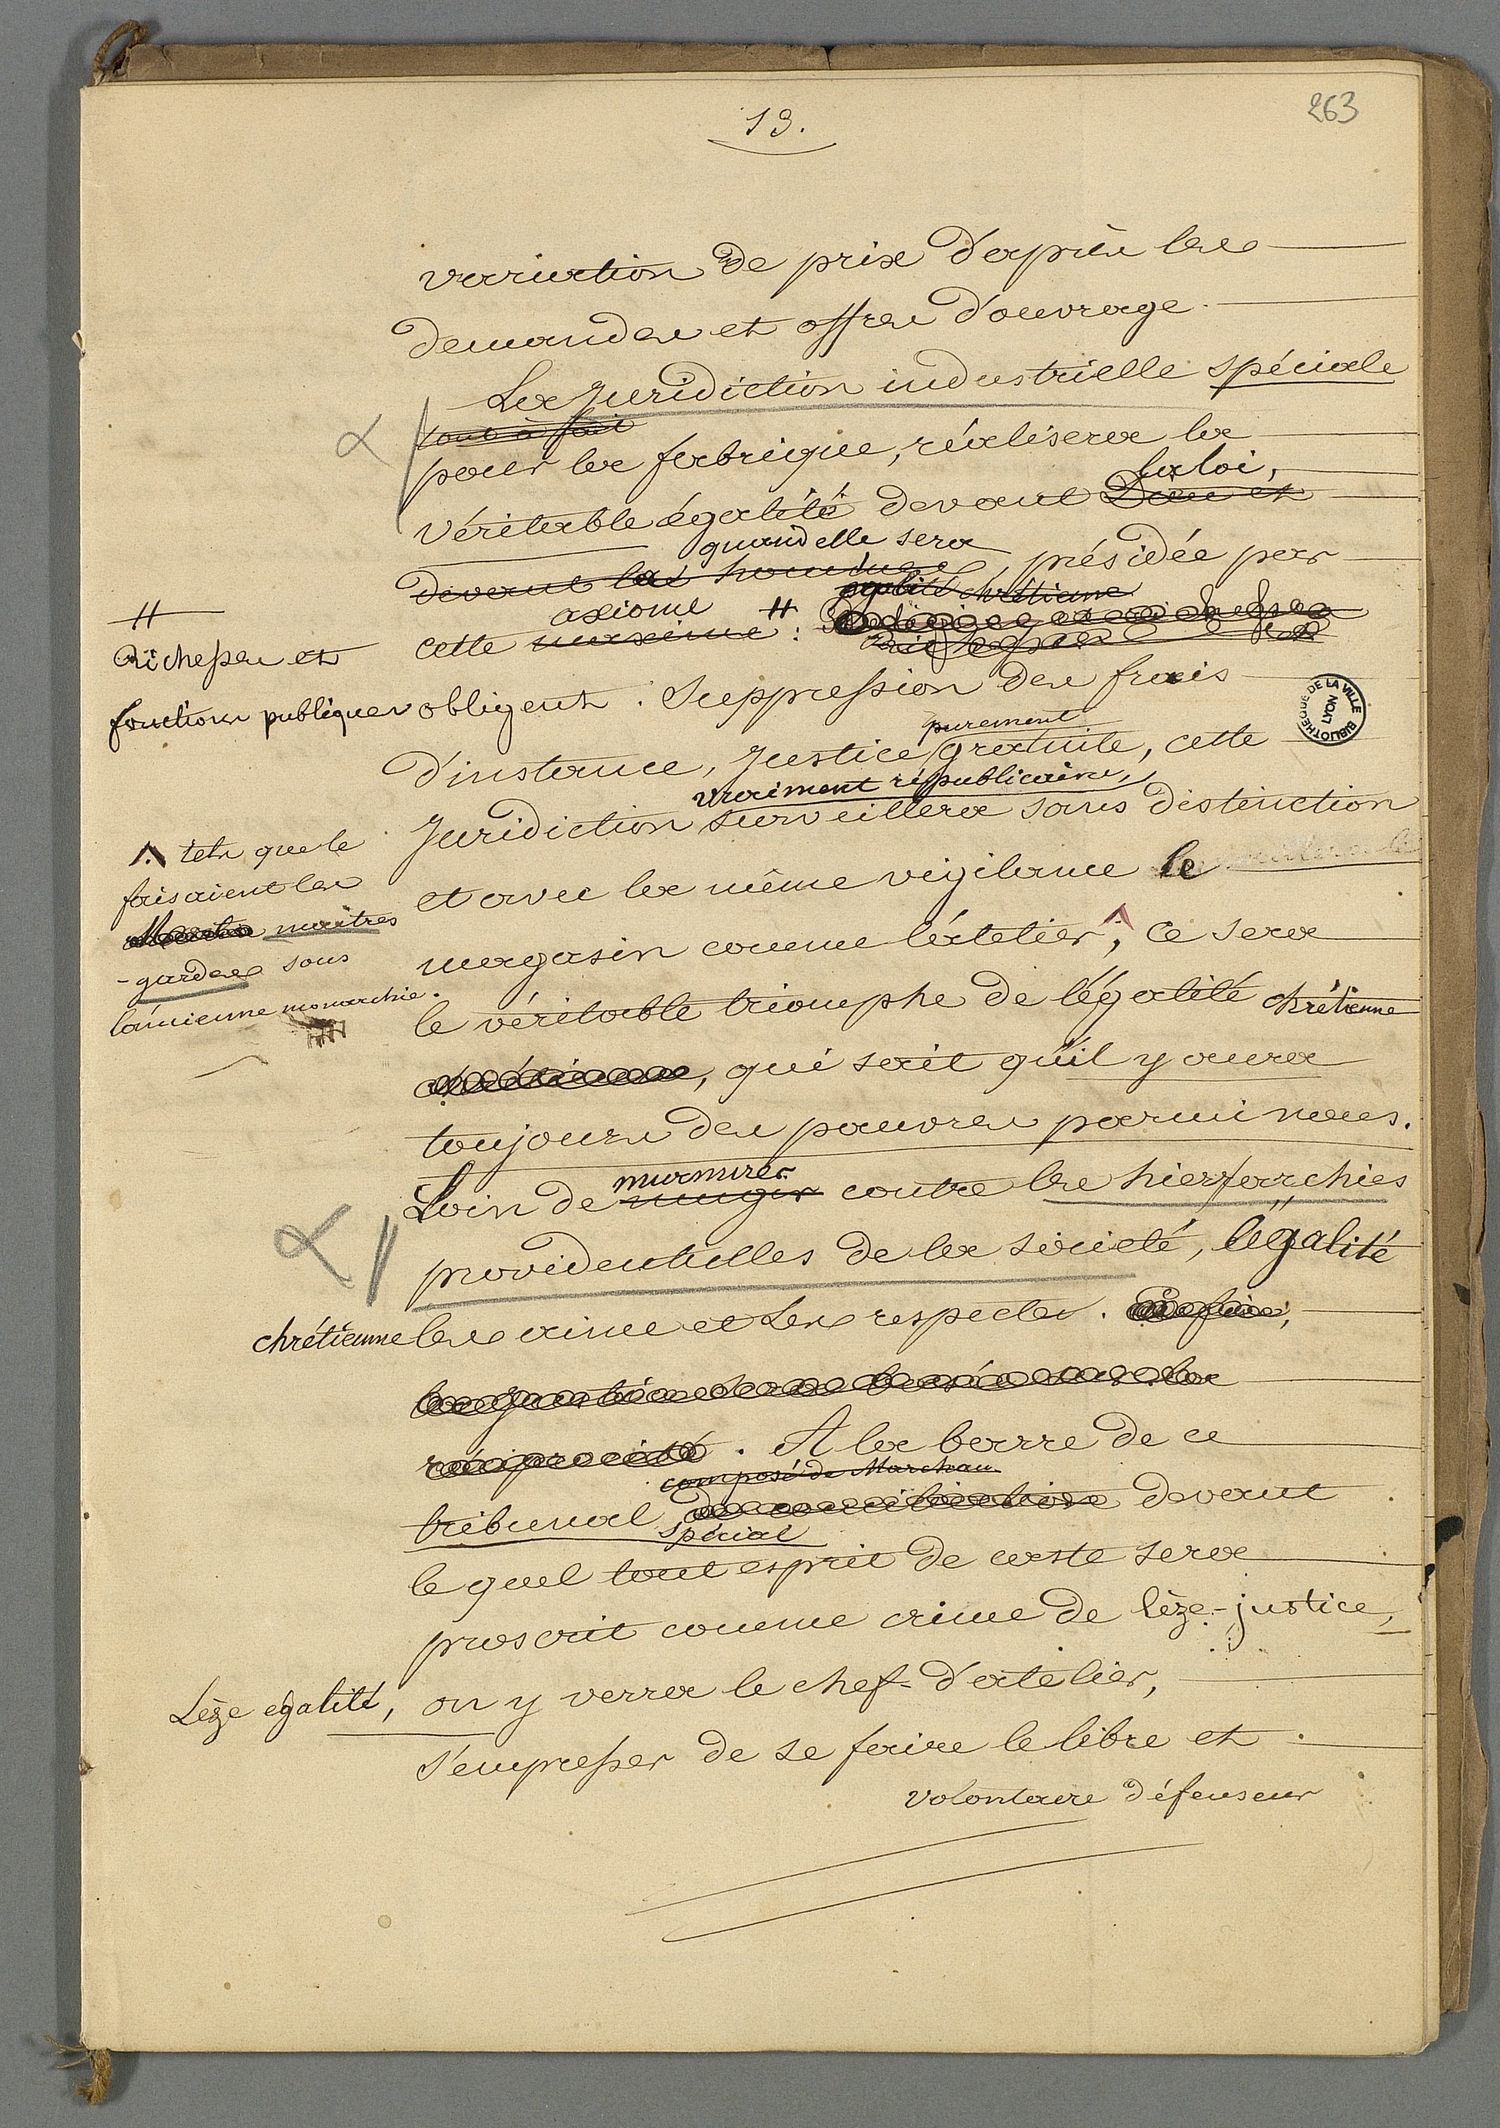 263
13.
variation de prix d'après les
demandes et offres d'ouvrage.
La Juridiction industrielle spéciale
tout à fait
pour la fabrique, réalisera la
la loi,
véritable égalité devant Dieu et
quand elle sera
devant les hommes, présidée par
égalité chrétienne
axiome
cette maxime # :
#
Richesses et
fonctions publiques obligent. Suppression des frais
purement
d'instance, Justice gratuite, cette
vraiment républicaine,
Juridiction surveillera sans distinction
et avec la même vigilance le
magasin comme l'atelier ^, ce sera
^ tels que le
faisaient les
maitres
-gardes sous
l'ancienne monarchie.
le véritable triomphe de l'égalité chrétienne
chrétienne, qui sait qu'il y aura
toujours des pauvres parmi nous.
murmurer
Loin de contre les hierrarchies
providentielles de la société, l'égalité
chrétienne les aime et les respecte. Enfin,
la justice sera basée sur la
réciprocité. A la barre de ce
composé de Marchau
tribunal, de conciliation devant
spécial
le quel tout esprit de caste sera
proscrit comme crime de lèze-justice,
Lèze egalité, on y verra le chef-d'atelier,
s'empresser de se faire le libre et
volontaire défenseur
BIBLIOTHEQUE DE LA VILLE
LYON